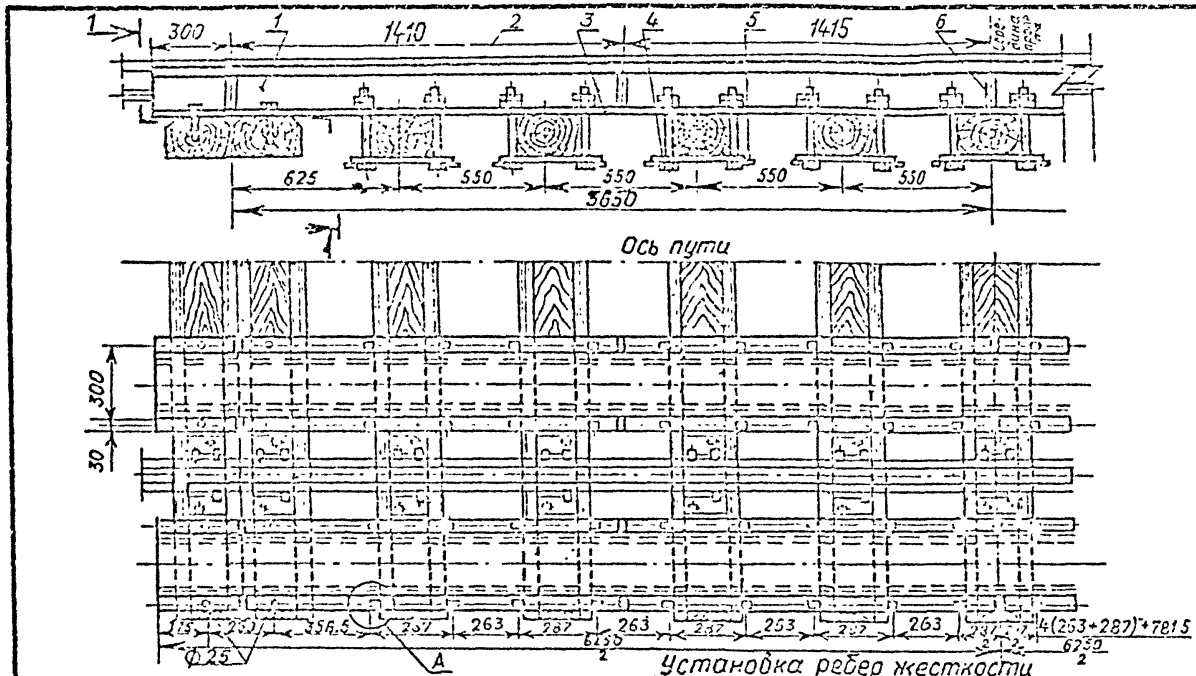 1
300
1
1410
2
3
4
5
1415
6
625
550
550
550
550
5650
Ось пути
300
30
263
287
263
287
263
287
263
4(263+287)+781.5
6250
2
6250
2
Ф25
А
Установка ребер жесткости